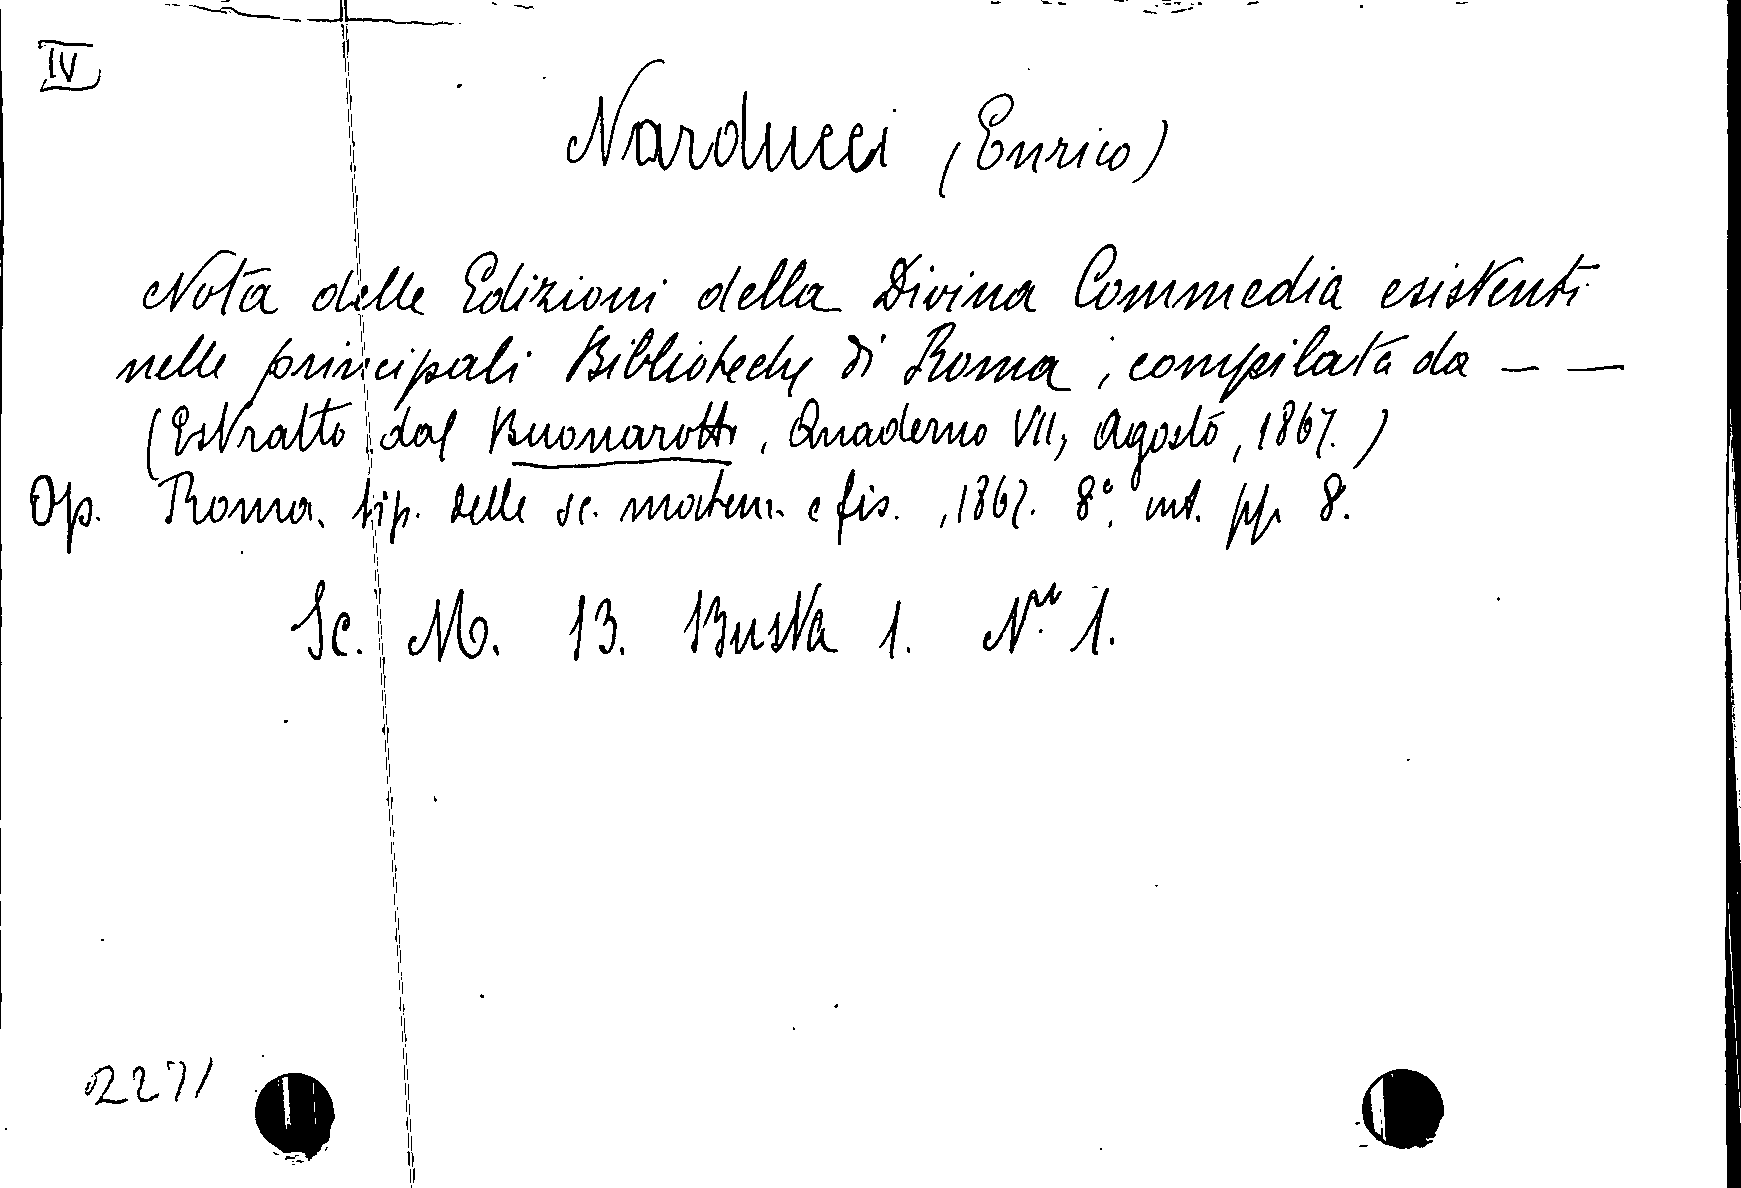 IV
Narducci (Enrico)
Nota delle Edizioni della Divina Commedia esistenti
nelle principali Biblioteche di Roma, compilata da — —
(Estratto dal Buonarotti, Quaderno VII, Agosto, 1867.)
Op. Roma. tip. delle sc. matem. e fis., 1867. 8.° int. pp. 8.
Sc. M. 13. Busta 1. N.ro 1.
2271